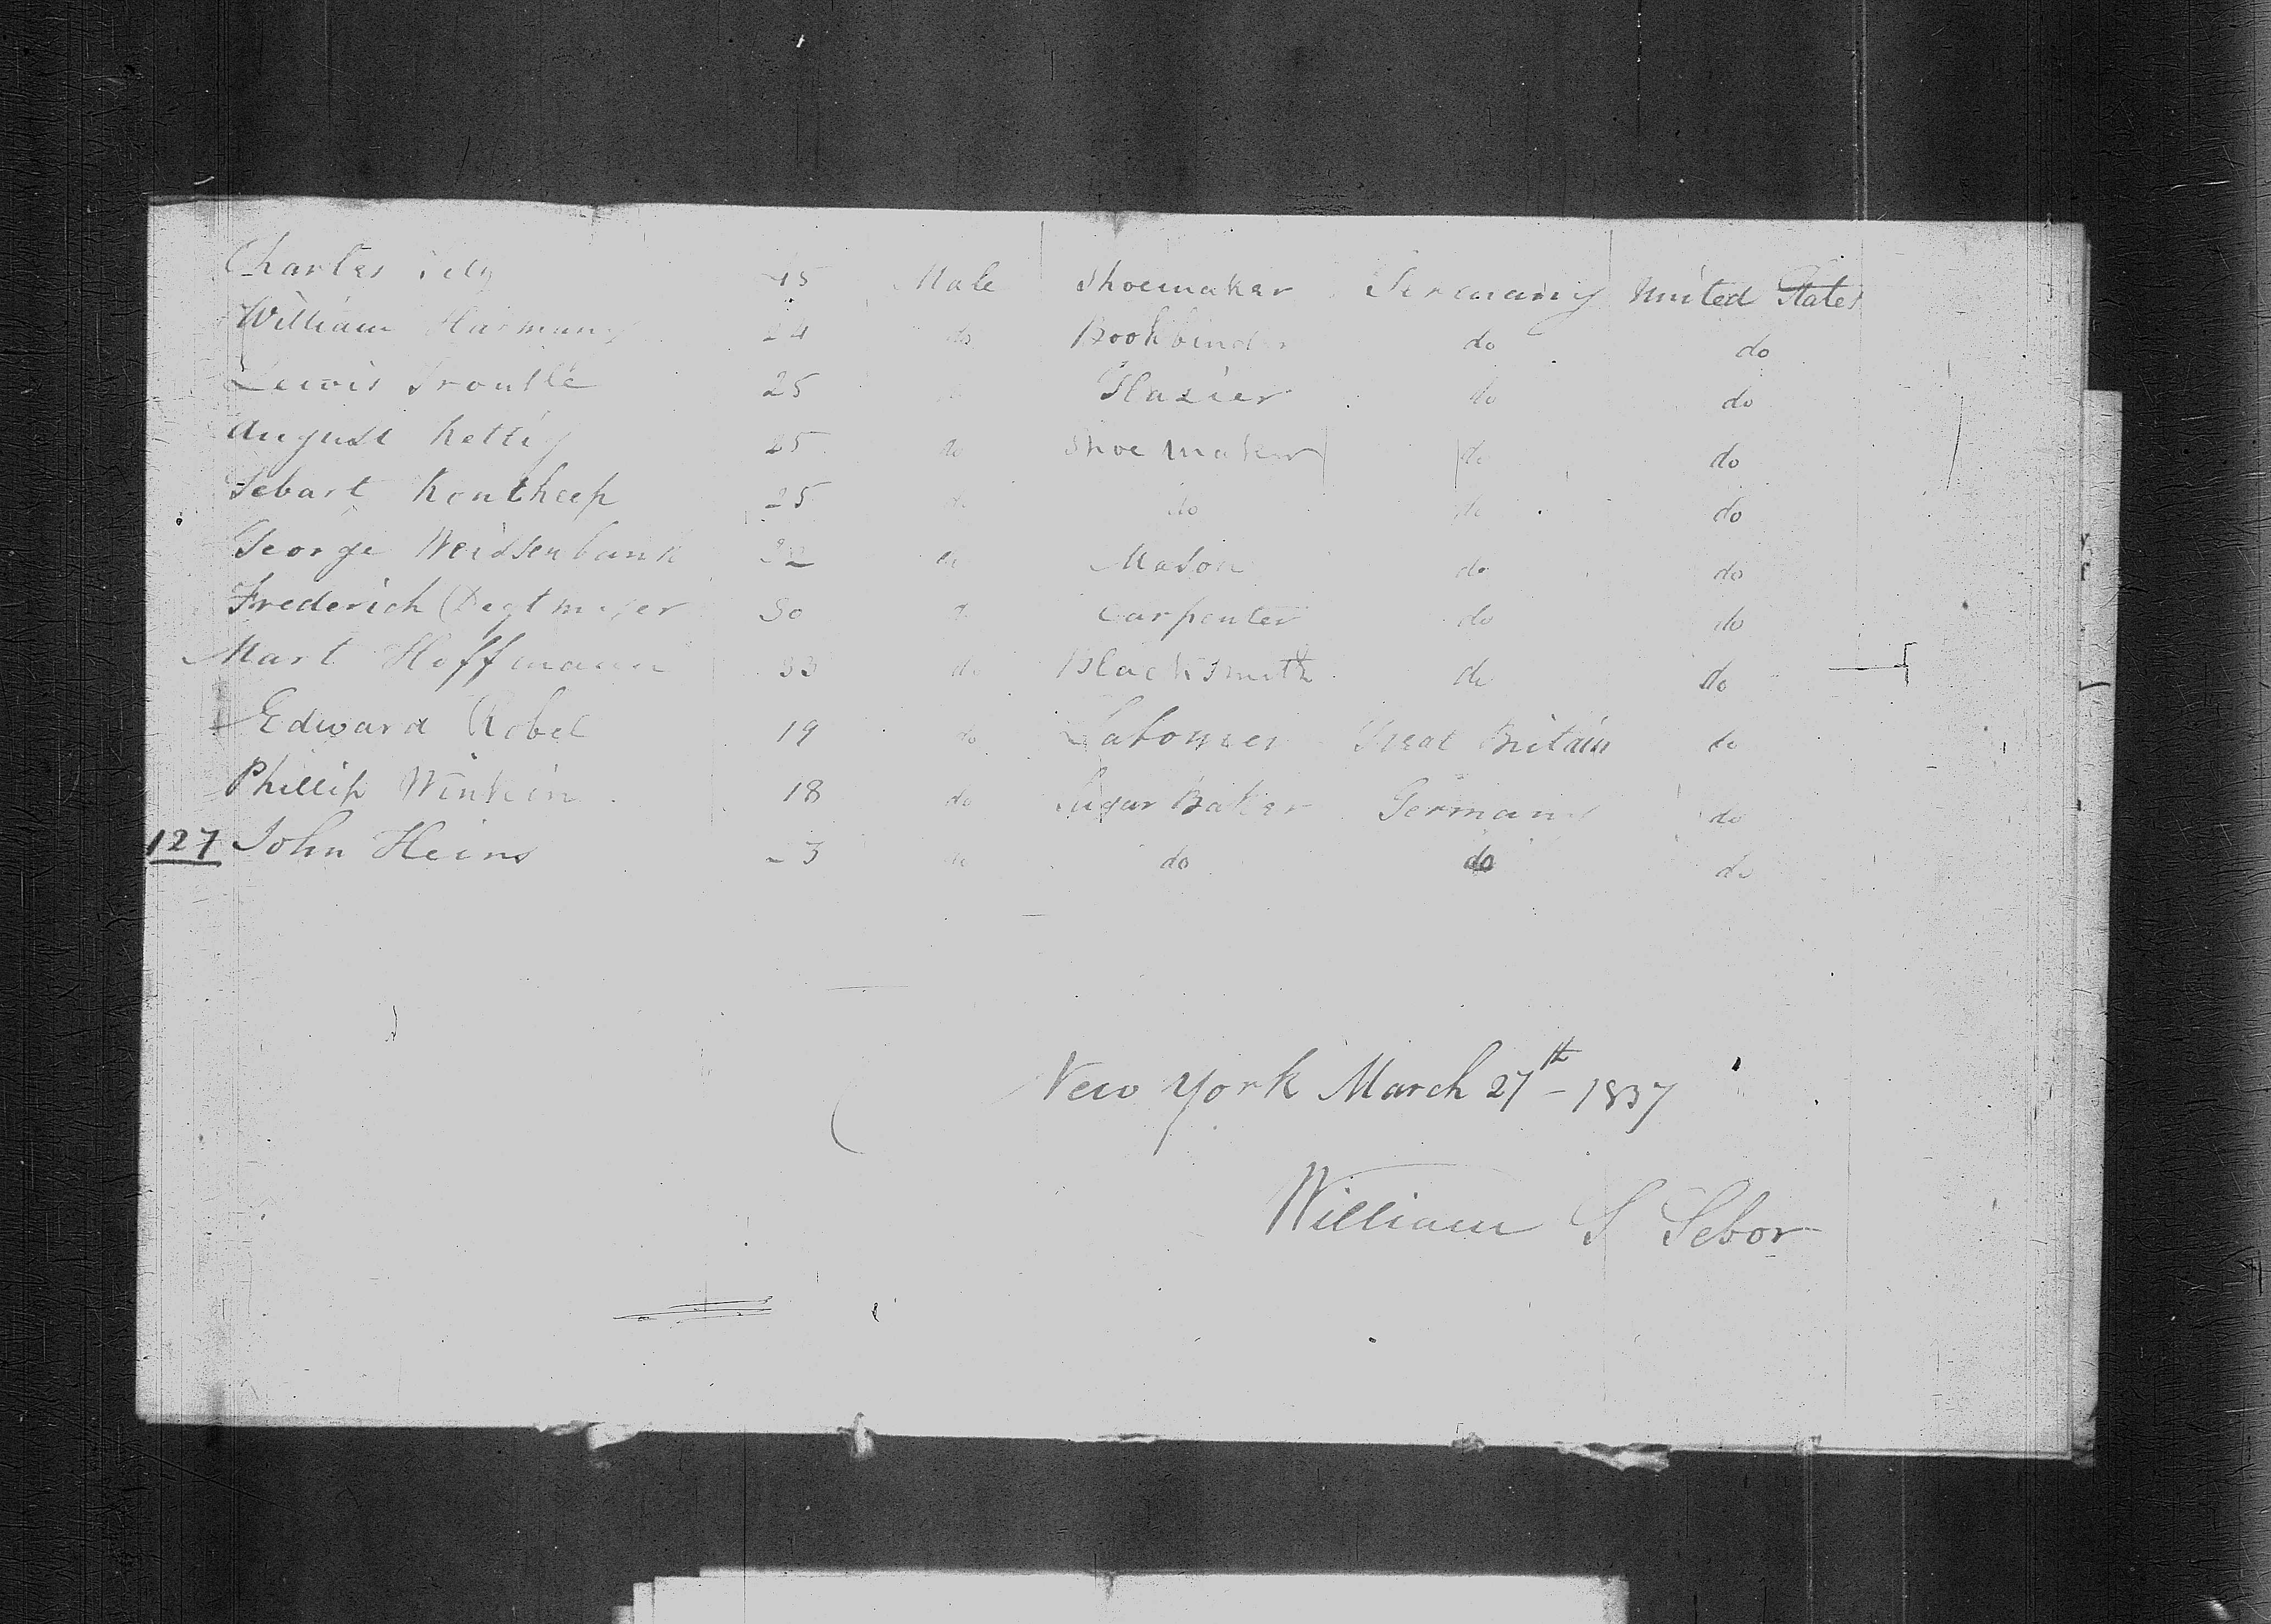 Charles 45 Male Shoemaker Germany United States
William Harmany 24 do Bookbinder do do
Lewis Troutte 25 Glazier do do
August Rettig 25 do Shoe maker do do
Sebart Kontheep 25 do do do do
George Weissenbank 32 do Mason do do
Frederich Degtmeyer 30 do Carpenter do do
Mart Hoffmann 33 do Blacksmith do do
Edward Robel 19 do Labourer Great Britain do
Phillip Winkin 18 do Sugar Baker Germany do
127 John Heins 23 do do do do
New York March 27th - 1837
William S Sebor